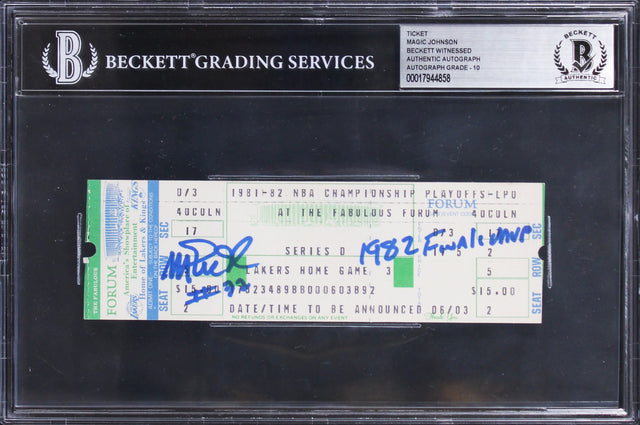 BECKETT GRADING SERVICES
TICKET
MAGIC JOHNSON
BECKETT WITNESSED
AUTHENTIC AUTOGRAPH
AUTOGRAPH GRADE - 10
00017944858
BECKETT
B
AUTHENTIC
THE FABULOUS
FORUM
America's Showplace of
Entertainment
Home of Lakers & Kings
KINGS
SEAT ROW SEC
D/3
40COLN
17
$15.00
2
1981-82 NBA CHAMPIONSHIP PLAYOFFS-LPO
AT THE FABULOUS FORUM
SERIES D
LAKERS HOME GAME 3
2234898B0000603892
DATE/TIME TO BE ANNOUNCED 06/03
NO REFUNDS OR EXCHANGES ON ANY EVENT
#32
1982 Finals MVP
FORUM
EVENT CODE
D/3
40COLN
17
5
$15.00
2
2
5
Thank You
SEAT ROW SEC